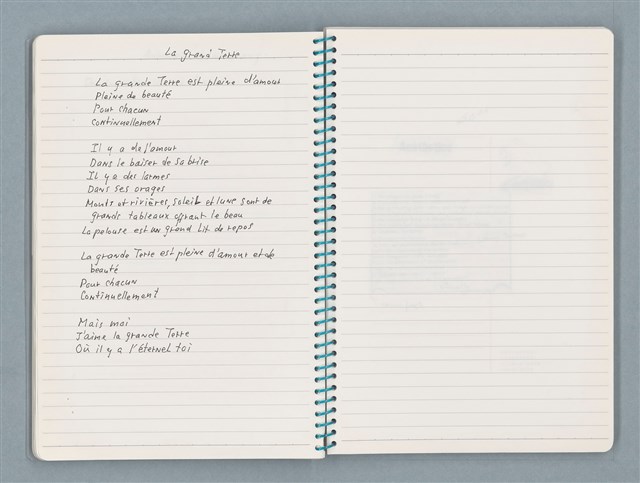 La grand Terre
La grande Terre est pleine d'amour
Pleine de beauté
Pour chacun
Continuellement
Il y a de l'amour
Dans le baiser de sa brise
Il y a des larmes
Dans ses orages
Monts et rivières, soleil et lune sont de
grands tableaux offrant le beau
La pelouse est un grand lit de repos
La grande Terre est pleine d'amour et de
beauté
Pour chacun
Continuellement
Mais moi
J'aime la grande Terre
Où il y a l'éternel toi